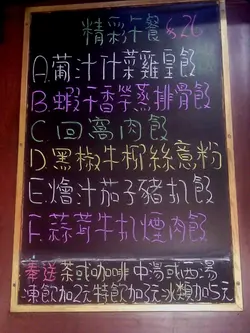 精彩午餐 $26
A.葡汁什菜雞皇飯
B.蝦干香芋蒸排骨飯
C.回窩肉飯
D.黑椒牛柳絲意粉
E.燴汁茄子豬扒飯
F.蒜茸牛扒煙肉飯
奉送茶或咖啡 中湯或西湯
凍飲加2元特飲加3元冰類加5元